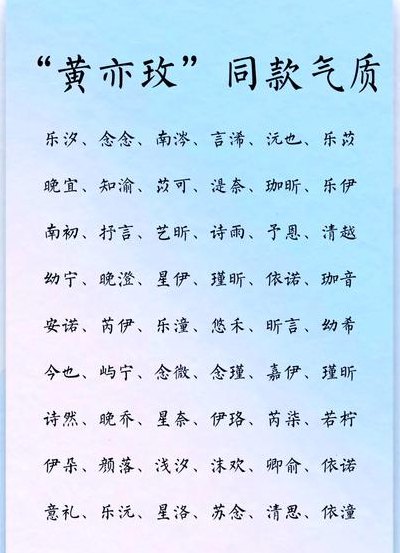 “黄亦玫”同款气质
乐汐、念念、南涔、言浠、沅也、乐苡
晚宜、知渝、苡可、湜奈、珈昕、乐伊
南初、抒言、艺昕、诗雨、予恩、清越
幼宁、晚澄、星伊、瑾昕、依诺、珈音
安诺、芮伊、乐潼、悠禾、昕言、幼希
今也、屿宁、念微、念瑾、嘉伊、瑾昕
诗然、晚乔、星奈、伊珞、芮柒、若柠
伊朵、颜落、浅汐、沫欢、卿俞、依诺
意礼、乐沅、星洛、苏念、清思、依潼